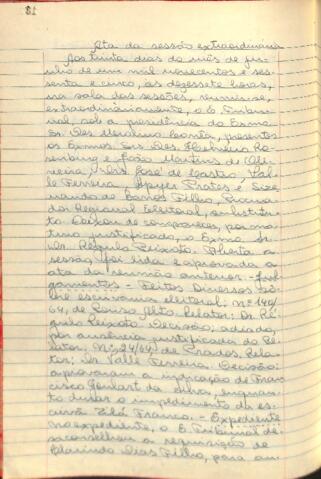 81
Ata da sessão extraordinária
Aos trinta dias do mês de ju-
nho de um mil novecentos e ses-
senta e cinco, às dezessete horas,
na sala das sessões, reuniu-se,
extraordinariamente, o E. Tribu-
nal, sob a presidência do Exmo.
Sr. Des. Merolino Corrêa, presentes
os Exmos. Srs. Des. Helvécio Ro-
senburg e João Martins de Oli-
veira, Drs. José de Castro, Val-
le Ferreira, Prates e Size-
nando de Barros Filho, Procura-
dor Regional Eleitoral, substituto.
Deixou de comparecer, por mo-
tivo justificado, o Exmo. Sr.
Dr. Régulo Peixoto. Aberta a
sessão, foi lida e aprovada a
ata da reunião anterior. - Jul-
gamentos - Feitos Diversos - Es-
colhe escrivania eleitoral: Nº 140/
64, de Pouso Alto. Relator: Dr. Ré-
gulo Peixoto. Decisão: adiado,
por ausência justificada do Re-
lator. Nº 24/64, de Prados. Rela-
tor: Dr. Valle Ferreira. Decisão:
aprovaram a indicação de Fran-
cisco Goulart da Silva, enquan-
to durar o impedimento da es-
crivã Zilá Franco. - Expediente
No expediente, o E. Tribunal de-
saconselhou a requisição de
Dias Filho, para au-